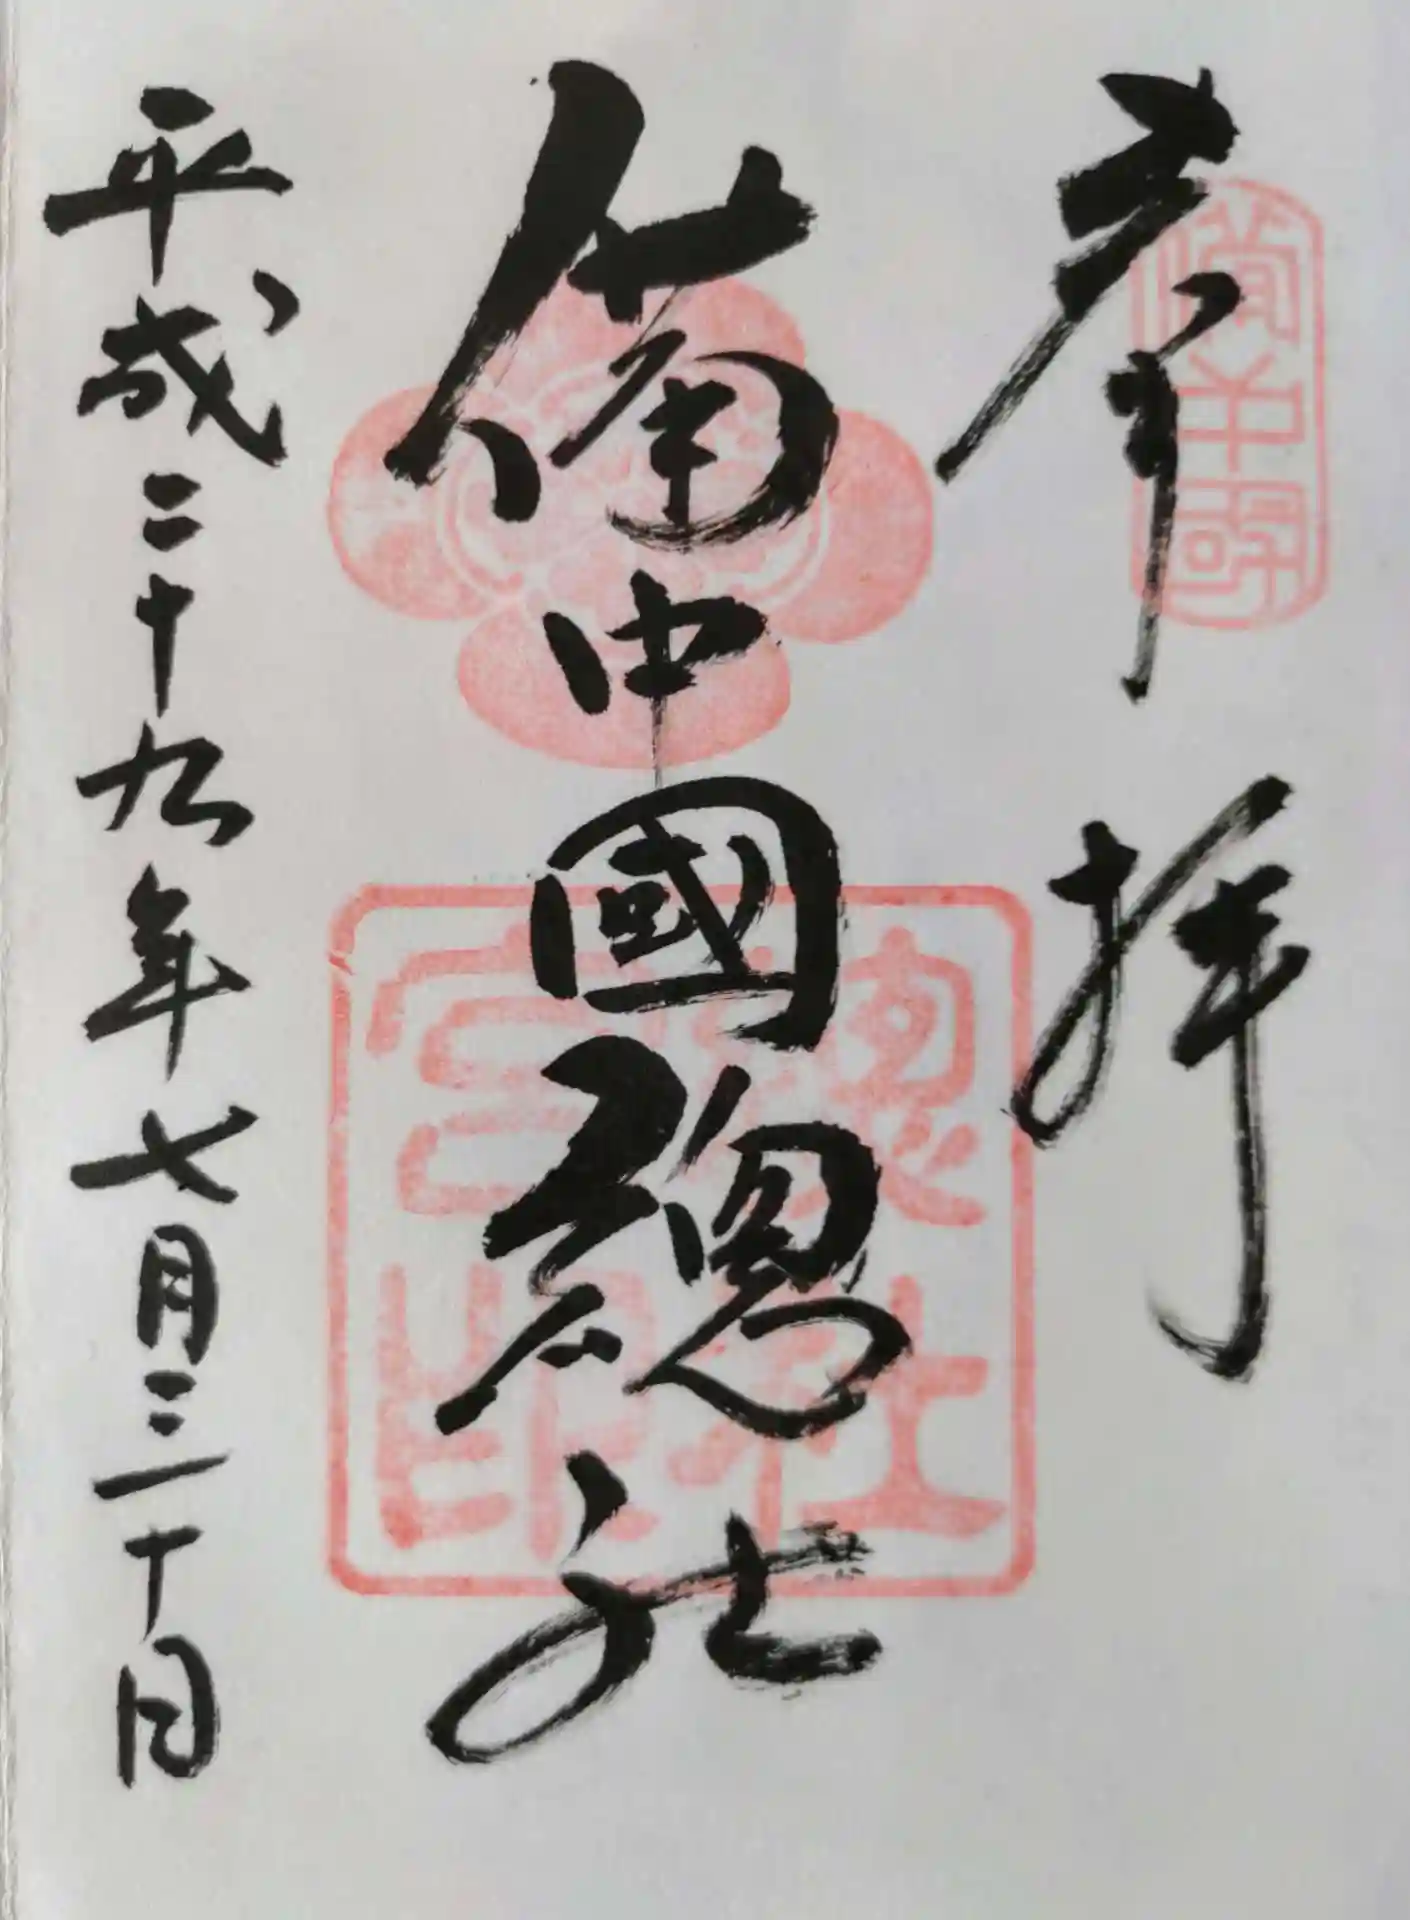 奉拝
備中国
備中國總社
總社
宮印
平成二十九年七月三十日